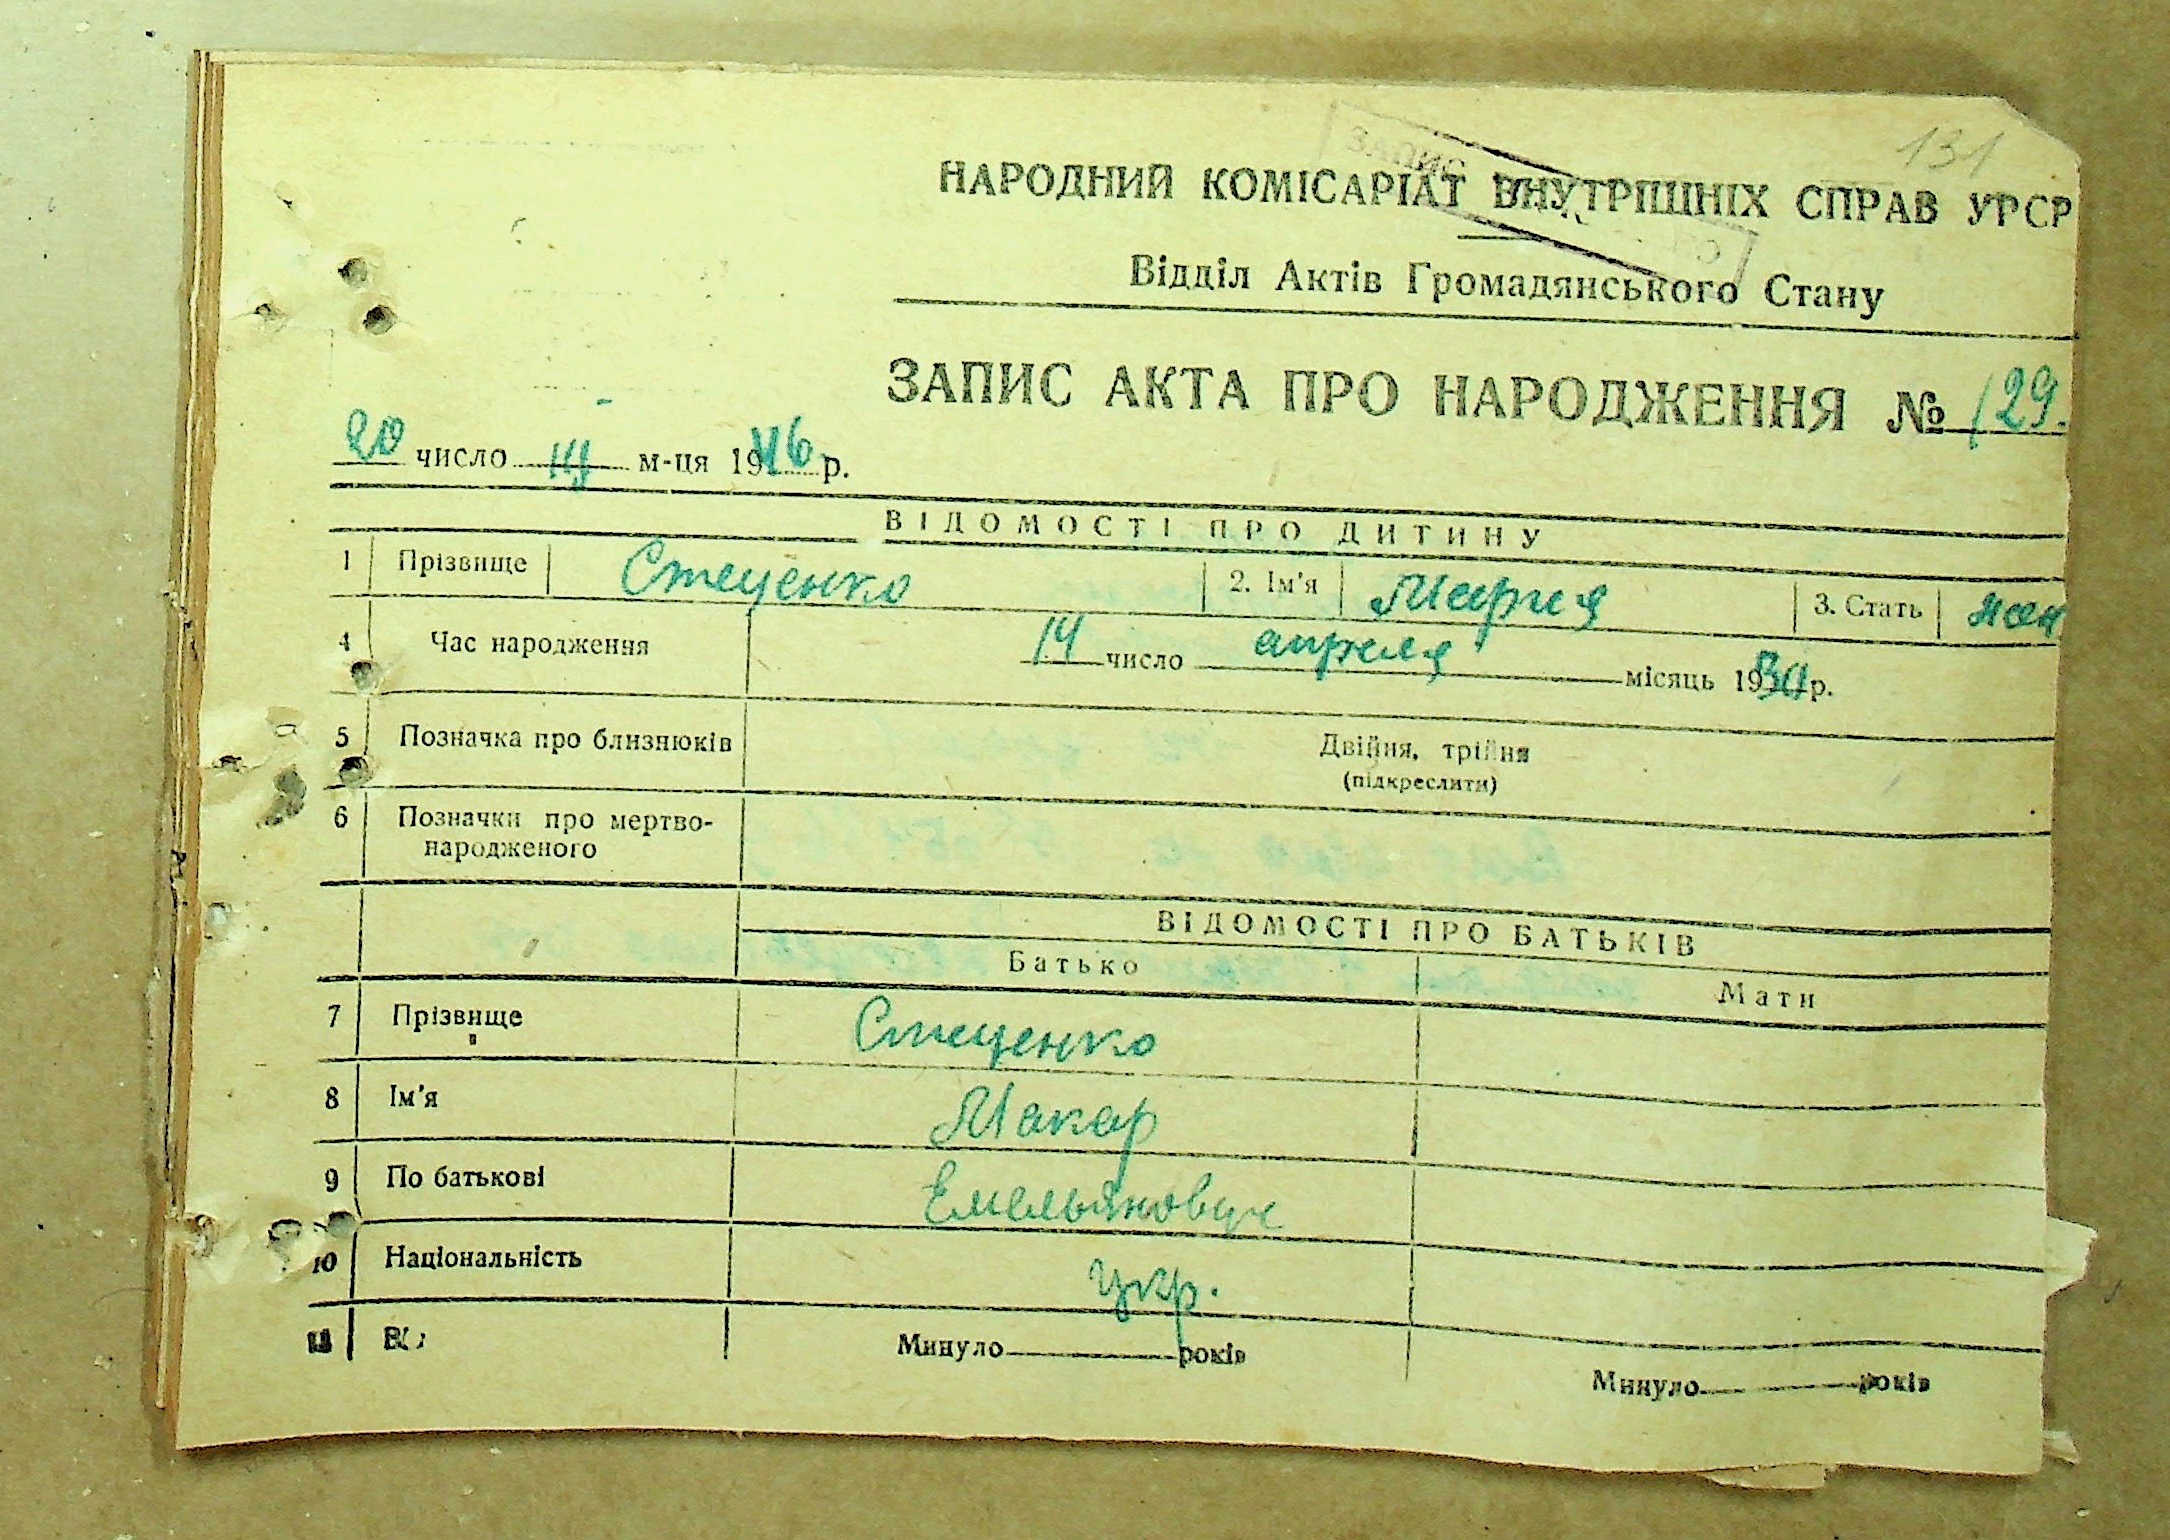 131
НАРОДНИЙ КОМІСАРІАТ ВНУТРІШНІХ СПРАВ УРСР
Відділ Актів Громадянського Стану
ЗАПИС АКТА ПРО НАРОДЖЕННЯ № 129.
20 число III м-ця 1946 р.
ВІДОМОСТІ ПРО ДИТИНУ
1 Прізвище Стеценко 2. Ім'я Мария 3. Стать жен
4 Час народження 14 число апреля місяць 19 р.
5 Позначка про близнюків Двійня, трійня
(підкреслити)
6 Позначки про мертво-
народженого
ВІДОМОСТІ ПРО БАТЬКІВ
Батько Мати
7 Прізвище Стеценко
8 Ім'я Макар
9 По батькові Емельянович
10 Національність укр.
11 Минуло років Минуло років